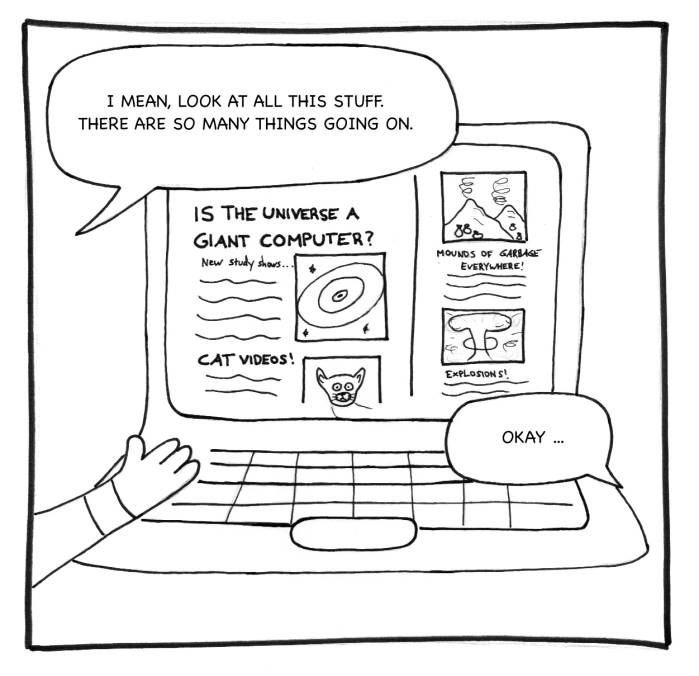 I MEAN, LOOK AT ALL THIS STUFF.
THERE ARE SO MANY THINGS GOING ON.
IS THE UNIVERSE A
GIANT COMPUTER?
New study shows...
CAT VIDEOS!
MOUNDS OF GARBAGE
EVERYWHERE!
EXPLOSIONS!
OKAY ...